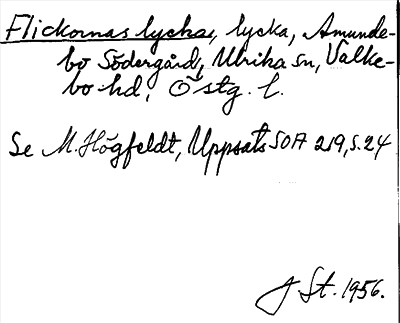 Flickornas lycka, lycka, Amunde-
bo Södergård, Ulrika sn, Valke-
bo hd, Östg. l.
Se M. Högfeldt, Uppsats SOA 219, s. 24
J St. 1956.